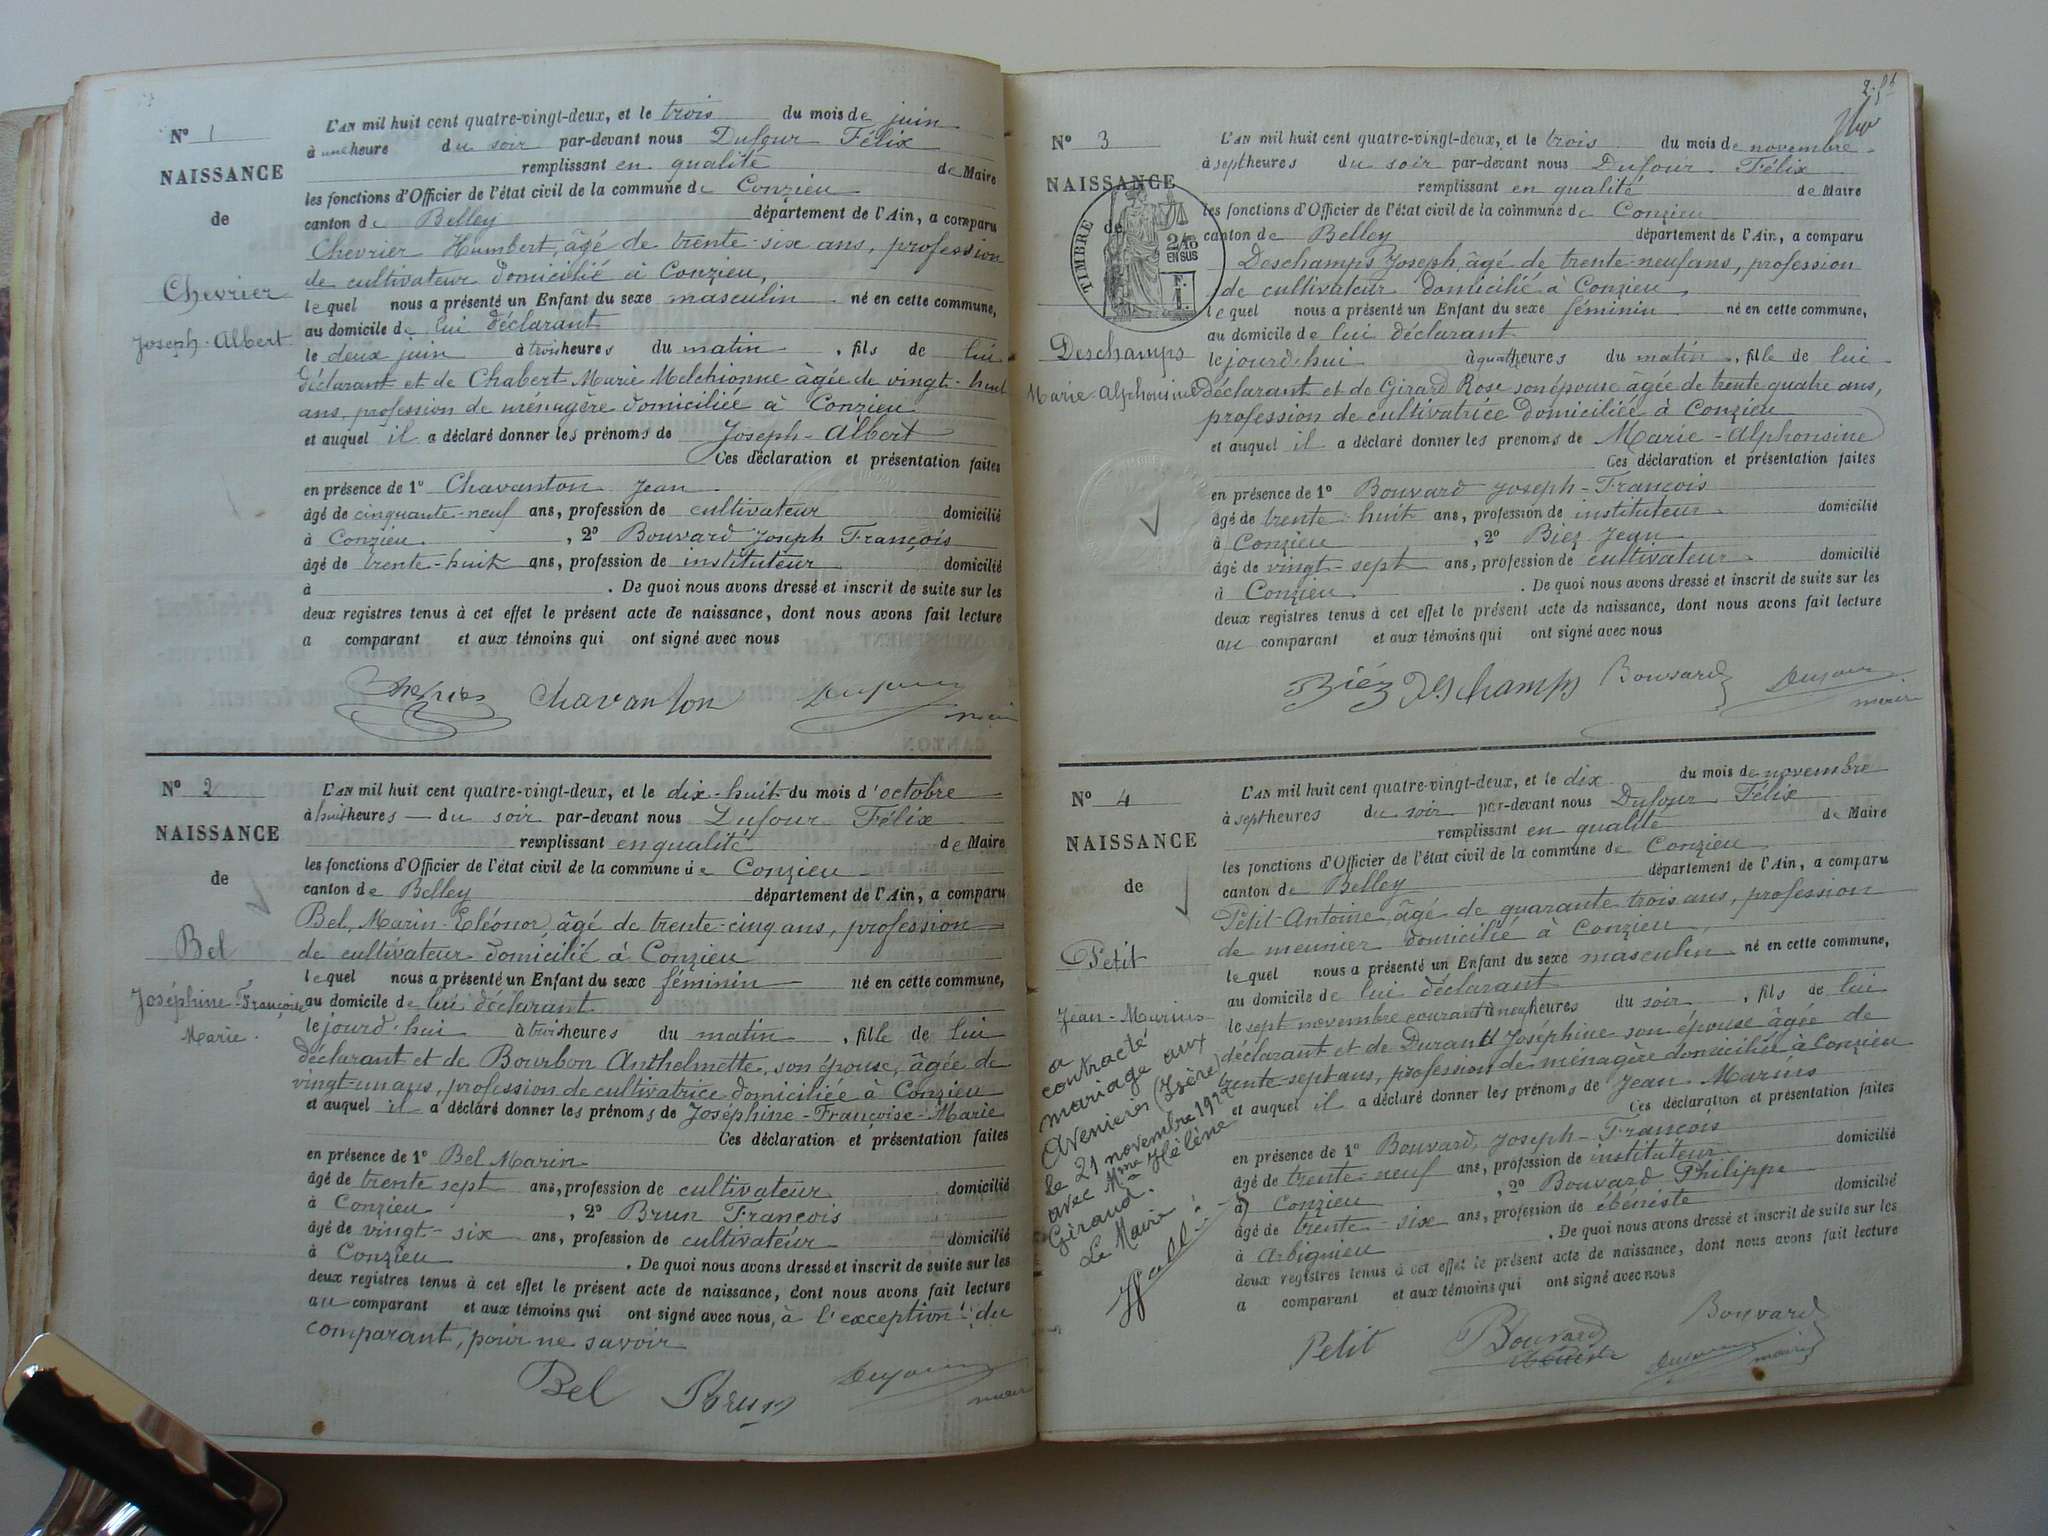 N° 1
NAISSANCE
de
Chevrier
Joseph-Albert
L'AN mil huit cent quatre-vingt-deux, et le trois du mois de juin
à une heure du soir par-devant nous Dufour Félix
remplissant en qualité de Maire
les fonctions d'Officier de l'état civil de la commune de Conzieu
canton de Belley département de l'Ain, a comparu
Chevrier Humbert, âgé de trente-six ans, profession
de cultivateur domicilié à Conzieu,
lequel nous a présenté un Enfant du sexe masculin né en cette commune,
au domicile de lui déclarant
le deux juin à trois heures du matin, fils de lui
déclarant et de Chabert Marie Melchionne âgée de vingt-huit
ans, profession de ménagère domiciliée à Conzieu
et auquel il a déclaré donner les prénoms de Joseph-Albert
Ces déclaration et présentation faites
en présence de 1° Chavanton Jean
âgé de cinquante-neuf ans, profession de cultivateur domicilié
à Conzieu, 2° Bouvard Joseph François
âgé de trente-huit ans, profession de instituteur domicilié
à . De quoi nous avons dressé et inscrit de suite sur les
deux registres tenus à cet effet le présent acte de naissance, dont nous avons fait lecture
a comparant et aux témoins qui ont signé avec nous
Chevrier Chavanton Dufour
maire
N° 2
NAISSANCE
de
Bel
Joséphine-Françoise
Marie.
L'AN mil huit cent quatre-vingt-deux, et le dix-huit du mois d'octobre
à huit heures du soir par-devant nous Dufour Félix
remplissant en qualité de Maire
les fonctions d'Officier de l'état civil de la commune de Conzieu
canton de Belley département de l'Ain, a comparu
Bel, Marin-Eléonor, âgé de trente-cinq ans, profession
de cultivateur domicilié à Conzieu
lequel nous a présenté un Enfant du sexe féminin né en cette commune,
au domicile de lui déclarant
le jourd'hui à trois heures du matin, fille de lui
déclarant et de Bourbon Anthelmette, son épouse, âgée de
vingt-un ans, profession de cultivatrice domiciliée à Conzieu
et auquel il a déclaré donner les prénoms de Joséphine-Françoise-Marie
Ces déclaration et présentation faites
en présence de 1° Bel Marin
âgé de trente sept ans, profession de cultivateur domicilié
à Conzieu, 2° Brun François
âgé de vingt-six ans, profession de cultivateur domicilié
à Conzieu. De quoi nous avons dressé et inscrit de suite sur les
deux registres tenus à cet effet le présent acte de naissance, dont nous avons fait lecture
au comparant et aux témoins qui ont signé avec nous, à l'exception du
comparant, pour ne savoir
Bel Brun Dufour
maire
N° 3
NAISSANCE
de
TIMBRE
2/10
EN SUS
Deschamps
Marie-Alphonsine
L'AN mil huit cent quatre-vingt-deux, et le trois du mois de novembre
à sept heures du soir par-devant nous Dufour Félix
remplissant en qualité de Maire
les fonctions d'Officier de l'état civil de la commune de Conzieu
canton de Belley département de l'Ain, a comparu
Deschamps Joseph, âgé de trente-neuf ans, profession
de cultivateur domicilié à Conzieu
lequel nous a présenté un Enfant du sexe féminin né en cette commune,
au domicile de lui déclarant
le jourd'hui à quatre heures du matin, fille de lui
déclarant et de Girard Rose son épouse âgée de trente quatre ans,
profession de cultivatrice domiciliée à Conzieu
et auquel il a déclaré donner les prénoms de Marie-Alphonsine
Ces déclaration et présentation faites
en présence de 1° Bouvard Joseph-François
âgé de trente-huit ans, profession de instituteur domicilié
à Conzieu, 2° Biez Jean
âgé de vingt-sept ans, profession de cultivateur domicilié
à Conzieu. De quoi nous avons dressé et inscrit de suite sur les
deux registres tenus à cet effet le présent acte de naissance, dont nous avons fait lecture
au comparant et aux témoins qui ont signé avec nous
Biéz Deschamps Bouvard Dufour
maire
N° 4
NAISSANCE
de
Petit
Jean-Marius
a
contracté
mariage aux
Avenières (Isère)
le 21 novembre
avec Mme Hélène
Giraud.
Le Maire:
L'AN mil huit cent quatre-vingt-deux, et le dix du mois de novembre
à sept heures du soir par-devant nous Dufour Félix
remplissant en qualité de Maire
les fonctions d'Officier de l'état civil de la commune de Conzieu
canton de Belley département de l'Ain, a comparu
Petit Antoine, âgé de quarante trois ans, profession
de meunier domicilié à Conzieu,
lequel nous a présenté un Enfant du sexe masculin né en cette commune,
au domicile de lui déclarant
le sept novembre courant à neuf heures du soir, fils de lui
déclarant et de Durand Joséphine son épouse âgée de
trente-sept ans, profession de ménagère domiciliée à Conzieu
et auquel il a déclaré donner les prénoms de Jean Marius
Ces déclaration et présentation faites
en présence de 1° Bouvard, Joseph-François
âgé de trente-neuf ans, profession de instituteur domicilié
à Conzieu, 2° Bouvard Philippe
âgé de trente-six ans, profession de ébéniste domicilié
à Arbignieu. De quoi nous avons dressé et inscrit de suite sur les
deux registres tenus à cet effet le présent acte de naissance, dont nous avons fait lecture
a comparant et aux témoins qui ont signé avec nous
Petit Bouvard Bouvard
ébéniste Dufour maire